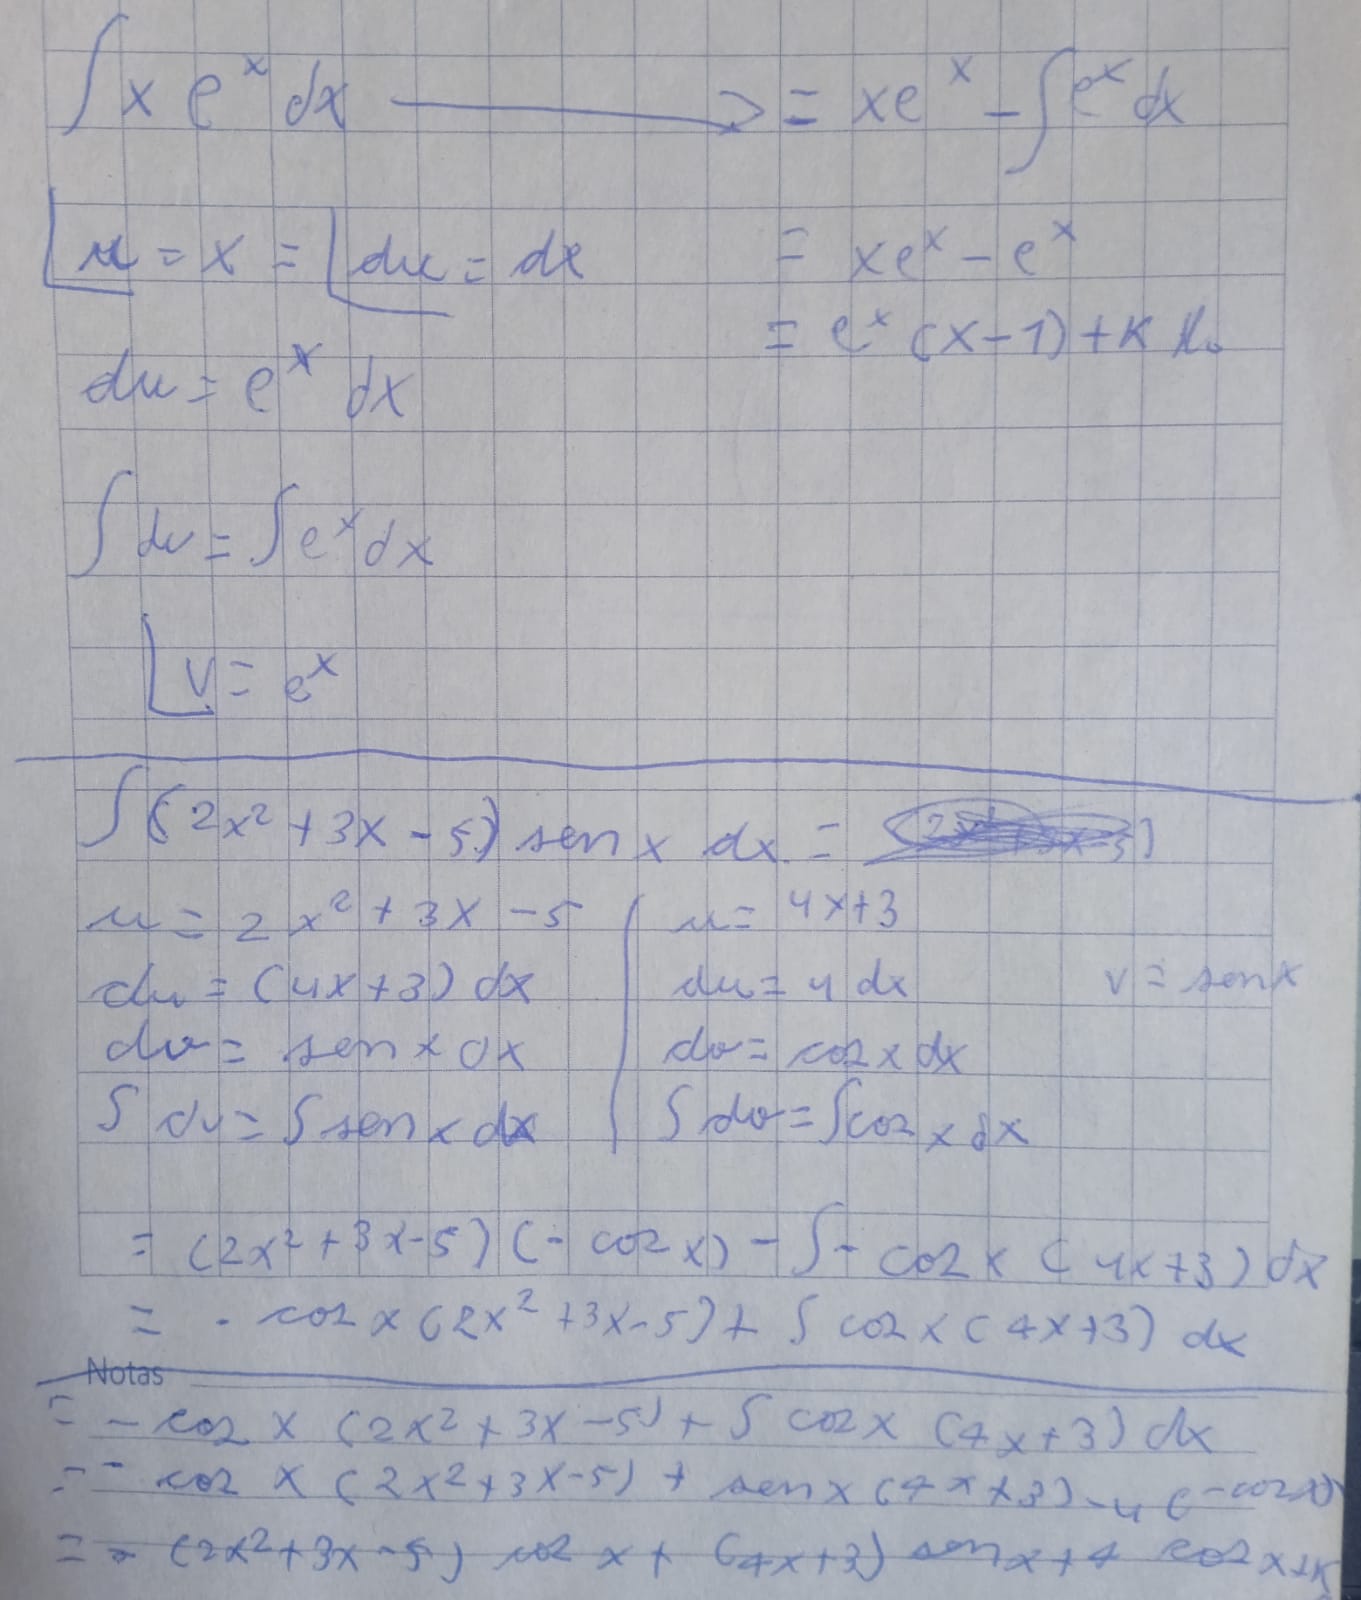 ∫ x e^x dx ⟶ = xe^x - ∫ e^x dx
u = x = du = dx
= xe^x - e^x
= e^x (x-1) + K
du = e^x dx
∫ dv = ∫ e^x dx
v = e^x
∫ (2x² + 3x - 5) sen x dx =
u = 2x² + 3x - 5
du = (4x+3) dx
dv = sen x dx
∫ dv = ∫ sen x dx
u = 4x+3
du = 4 dx
dv = cos x dx
∫ dv = ∫ cos x dx
v = sen x
= (2x² + 3x-5) (- cos x) - ∫ - cos x (4x+3) dx
= - cos x (2x² + 3x-5) + ∫ cos x (4x+3) dx
Notas
= - cos x (2x² + 3x - 5) + ∫ cos x (4x+3) dx
= - cos x (2x² + 3x-5) + sen x (4x+3) - 4 (-cos x)
= - (2x² + 3x - 5) cos x + (4x+3) sen x + 4 cos x + K